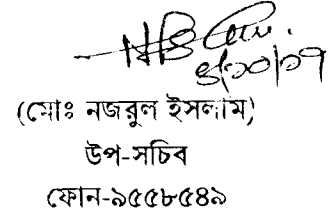 ৪/১০/১৭
(মোঃ নজরুল ইসলাম)
উপ-সচিব
ফোন-৯৫৫৮৫৪৯